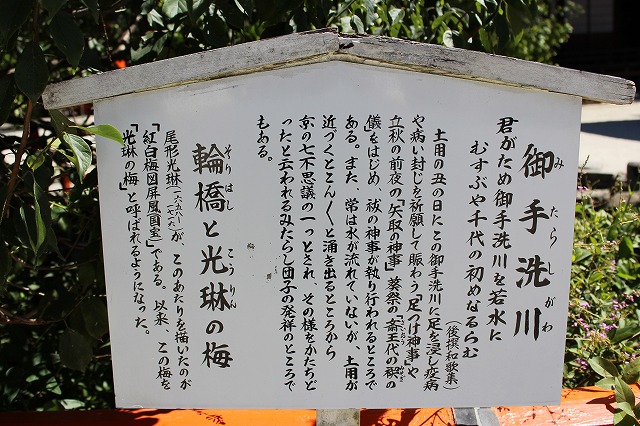 御手洗川
みたらしがわ
君がため御手洗川を若水に
むすぶや千代の初めなるらむ
（後撰和歌集）
土用の丑の日にこの御手洗川に足を浸し疫病
や病い封じを祈願して賑わう「足つけ神事」や
立秋の前夜の「矢取の神事」葵祭の「斎王代の禊の
儀」をはじめ、祓の神事が執り行われるところで
ある。また、常は水が流れていないが、土用が
近づくとこんこんと湧き出るところから
京の七不思議の一つとされ、その様をかたちど
ったと云われるみたらし団子の発祥のところで
もある。
輪橋と光琳の梅
そりはし
こうりん
尾形光琳が、このあたりを描いたのが
「紅白梅図屏風」国宝である。以来、この梅を
「光琳の梅」と呼ばれるようになった。